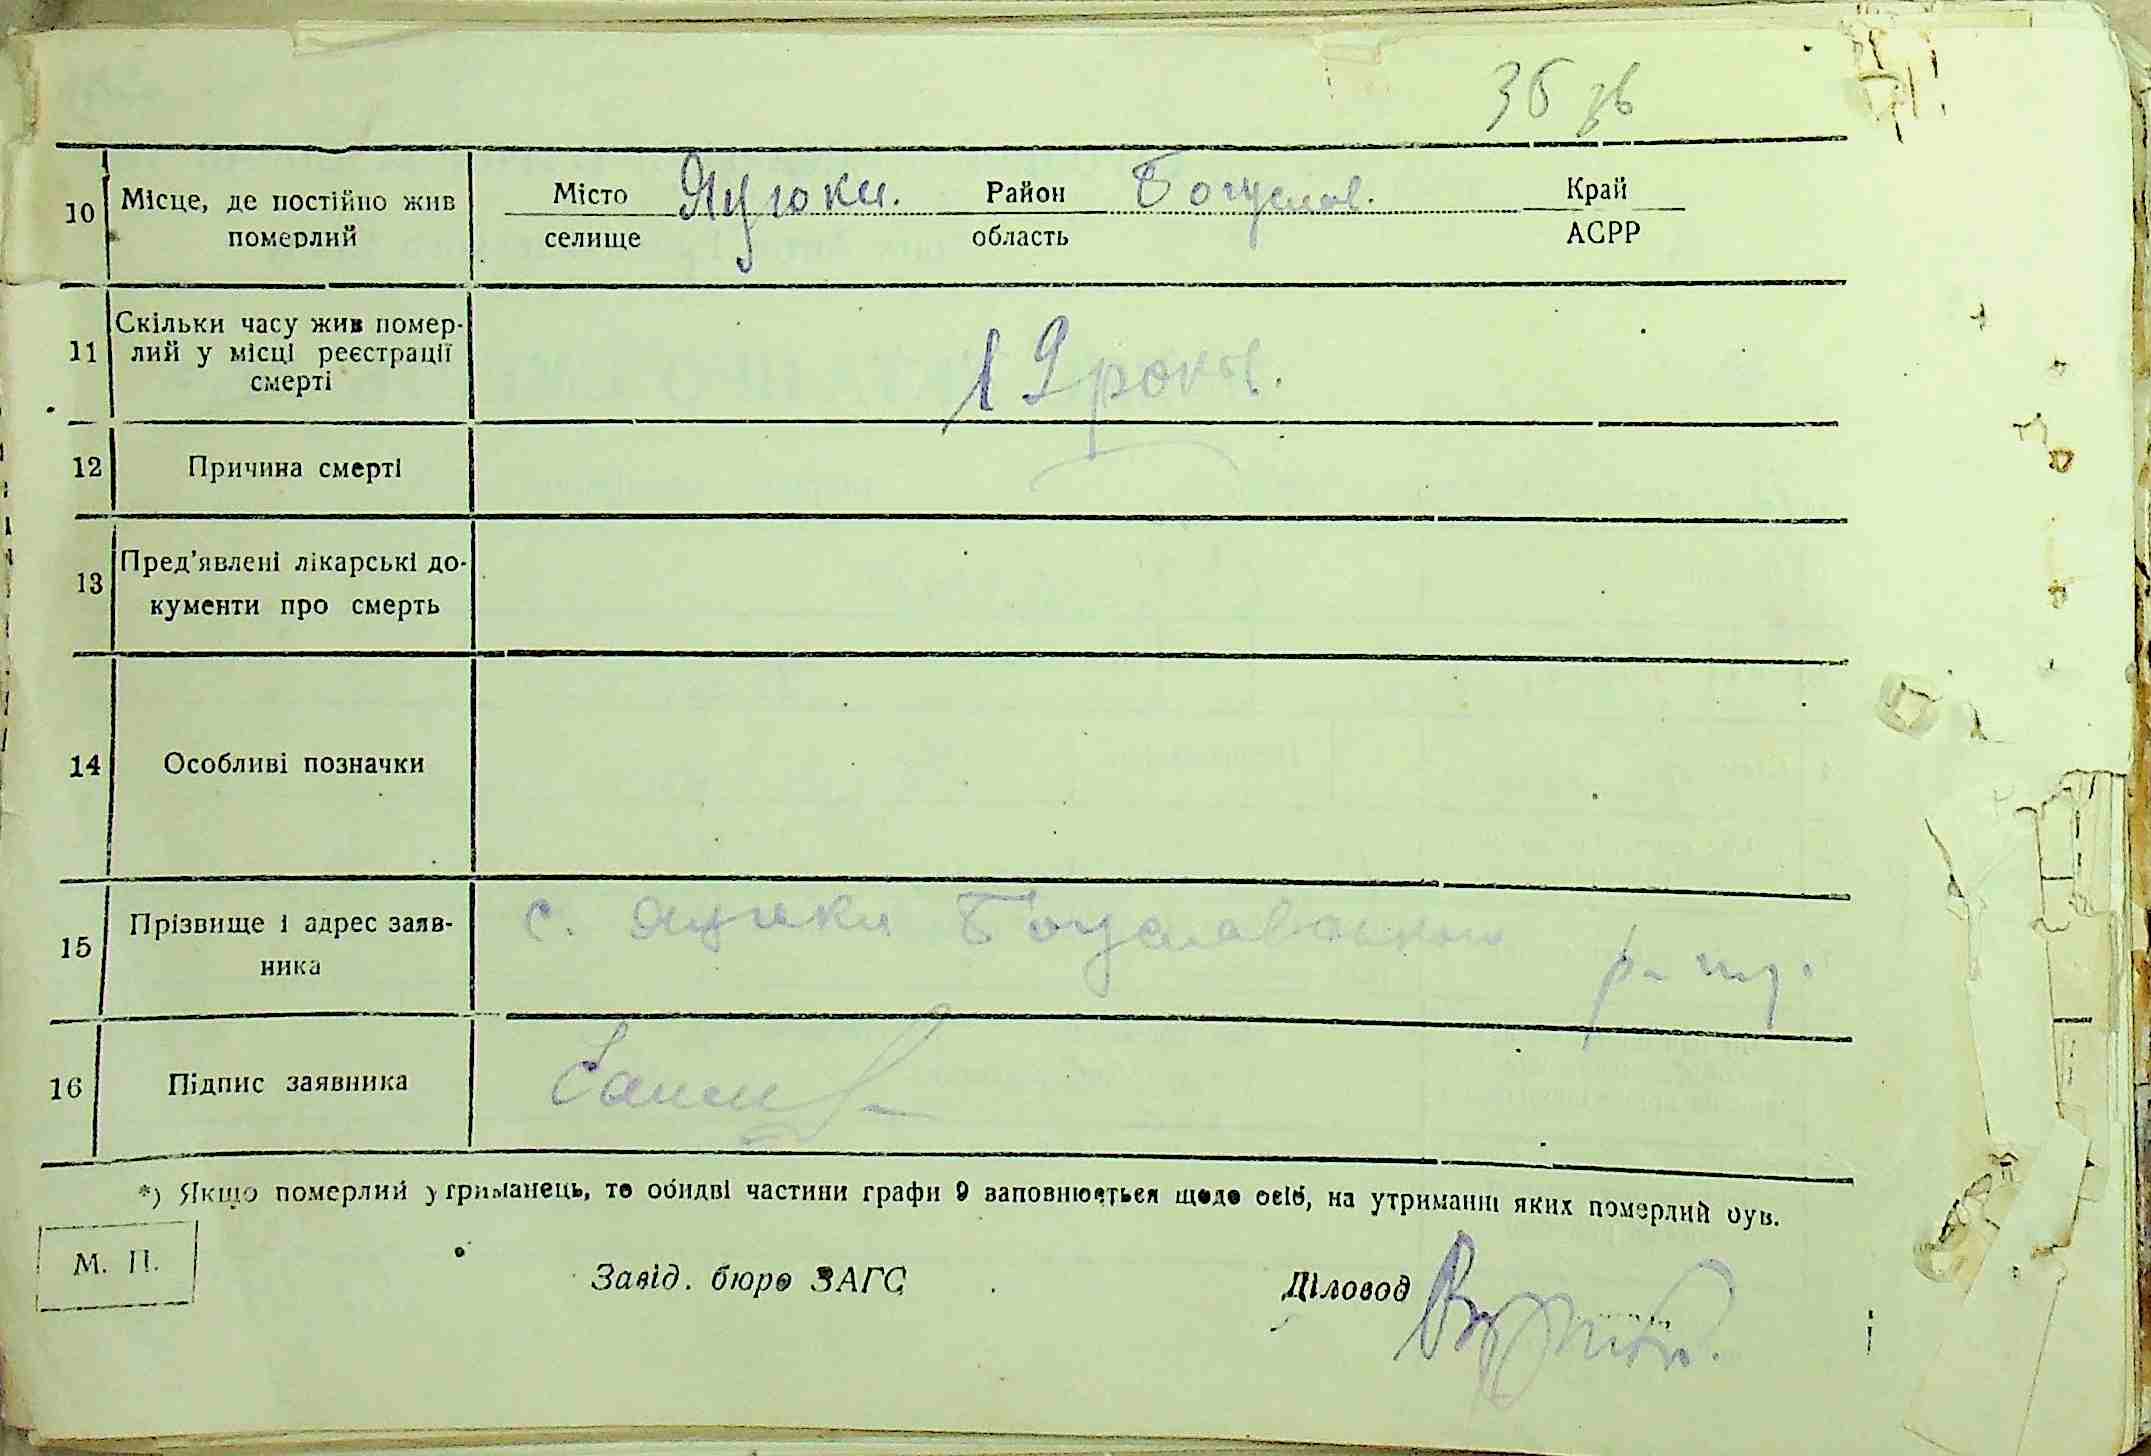 36 зв
10 Місце, де постійно жив померлий
Місто селище Яцюки. Район область Богуслав. Край АСРР
11 Скільки часу жив помер-
лий у місці реєстрації
смерті
19 років.
12 Причина смерті
13 Пред'явлені лікарські до-
кументи про смерть
14 Особливі позначки
15 Прізвище і адрес заяв-
ника
с. Яцюки Богуславського
р-ну.
16 Підпис заявника
*) Якщо померлий утриманець, то обидві частини графи 9 заповнюється щодо осіб, на утриманні яких померлий був.
М. П.
Завід. бюро ЗАГС
Діловод